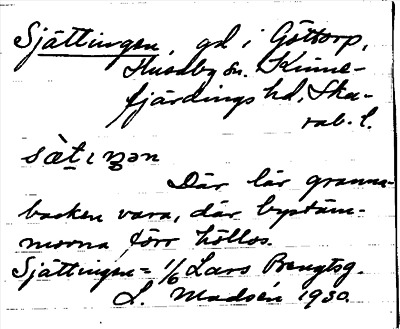 Sjättingen, gd i Göttorp,
Husaby sn. Kinne-
fjärdings hd, Ska-
rab. l.
Där lär granna-
backen vara, där bystäm-
morna förr höllos.
Sjättingen = 1/6 Lars Bengtsg.
L. Madsén 1930.